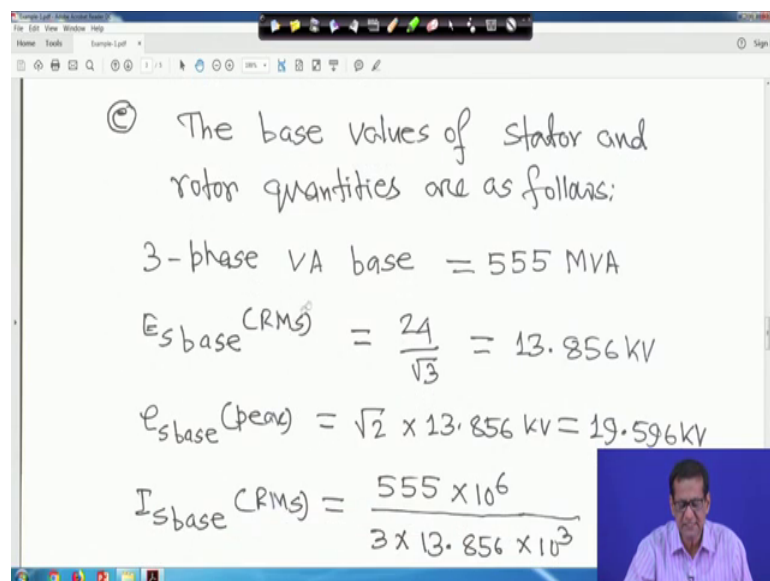 Example-1.pdf - Adobe Acrobat Reader DC
File Edit View Window Help
Home Tools Example-1.pdf × Sign
ⓔ The base values of stator and
rotor quantities are as follows:
3-phase VA base = 555 MVA
E_s base (RMS) = 24/√3 = 13.856 KV
e_s base (peak) = √2 × 13.856 KV = 19.596 KV
I_s base (RMS) = 555 × 10^6 / 3 × 13.856 × 10^3